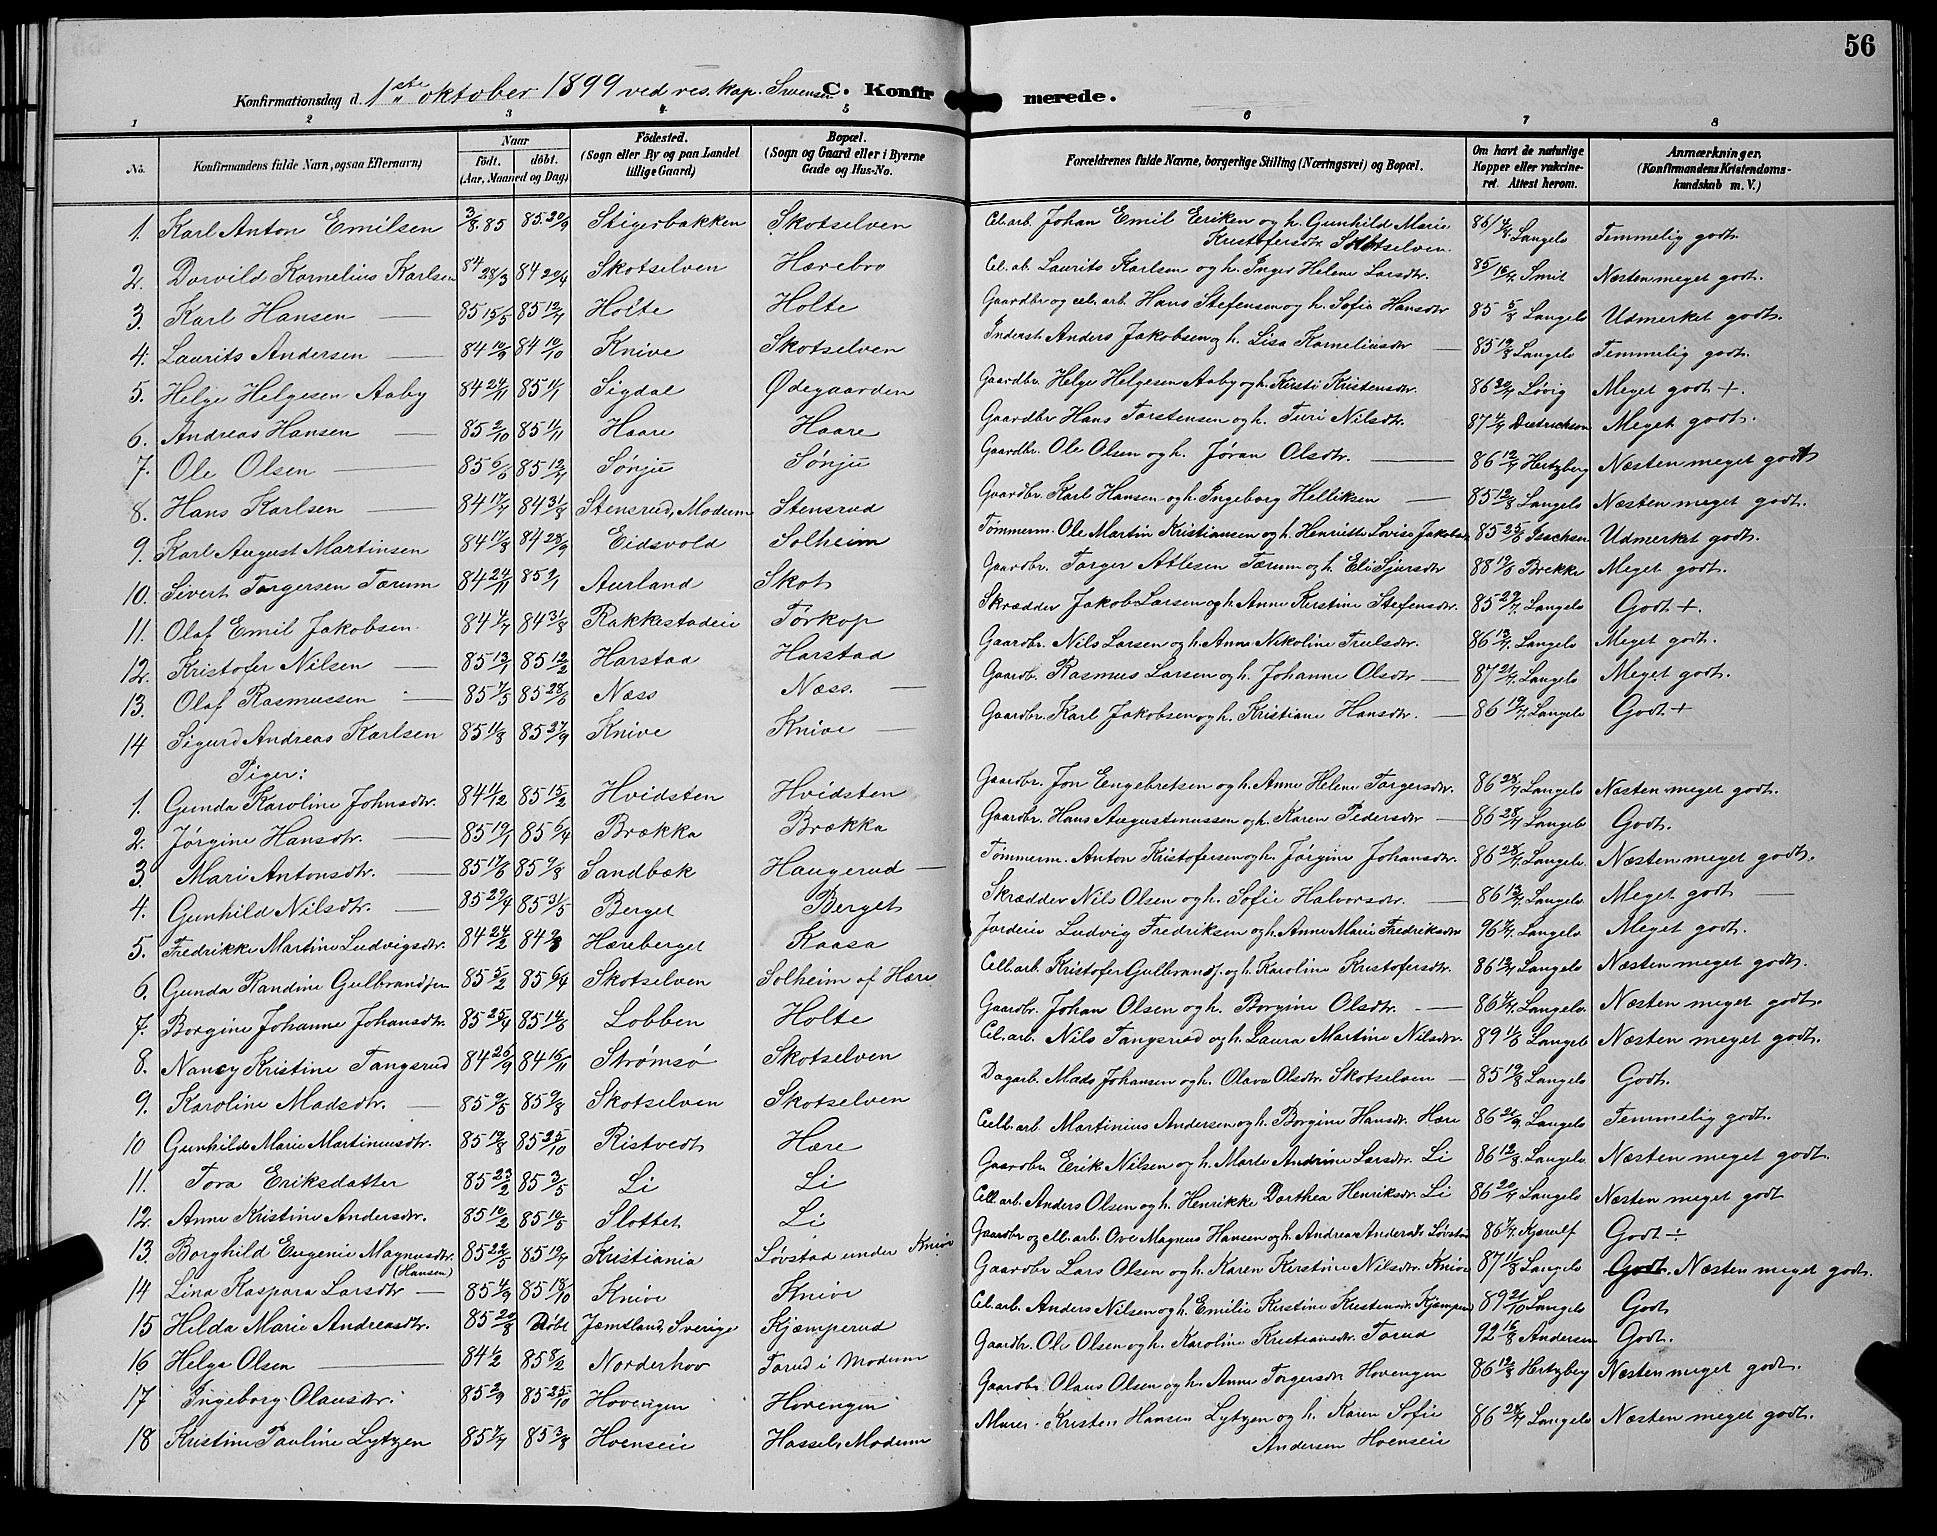 56
Konfirmationsdag d. 1ste oktober 1899 ved res. kap. C. Konfirmerede.
1 2 3 4 5 6 7 8
No. Konfirmandens fulde Navn, ogsaa Efternavn) Naar født. døbt. (Aar, Maaned og Dag) Födested. (Sogn eller By og paa Landet tillige Gaard) Bopæl. (Sogn og Gaard eller i Byerne Gade og Hus-No. Forældrenes fulde Navne, borgerlige Stilling (Næringsvei) og Bopæl. Om havt de naturlige Kopper eller vakcineret. Attest herom. Anmærkninger. (Konfirmandens Kristendomskundskab m. V.)
1. Karl Anton Emilsen 3/8. 85 85 20/9 Stigerbakken Skotselven Cel. arb. Johan Emil Eriken og h. Gunhild Marie Kristofersdtr. Skotselven 86 Langelo Temmelig godt.
2. Dorvild Kornelius Karlsen 84 28/3 84 20/4 Skotselven Hærebro Cel. ab. Laurits Karlsen og h. Inger Helene Larsdtr. 85 Smit Næsten meget godt.
3. Karl Hansen 85 15/5 85 12/7 Holte Holte Gaardbr og cel. arb. Hans Stefensen og h. Sofie Hansdtr 85 5/8 Langelo Udmerket godt.
4. Laurits Andersen 84 10/9 84 19/10 Knive Skotselven Inderst Anders Jakobsen og h. Lisa Korneliusdtr 85 19/8 Langelo Temmelig godt.
5. Helge Helgesen Aaby 84 24/11 85 1/1 Sigdal Ødegaarden Gaardbr. Helge Helgesen Aaby og h. Kirsti Kristensdtr. 86 20/7 Løvig Meget godt +.
6. Andreas Hansen 85 2/10 85 1/11 Haare Haare Gaardbr Hans Torstensen og h. Turi Nilsdtr. 87 4/7 Diedrichsen Meget godt.
7. Ole Olsen 85 6/6 85 12/7 Sønju Sønju Gaardbr. Ole Olsen og h. Jøran Olsdtr. 86 12/7 Hertzberg Næsten meget godt
8. Hans Karlsen 84 17/7 84 31/8 Stensrud, Modum Stensrud Gaardbr. Karl Hansen og h. Ingeborg Helliksen 85 12/8 Langelo Næsten meget godt.
9. Karl August Martinsen 84 17/8 84 28/9 Eidsvold Solheim Tømmerm. Ole Martin Kristiansen og h. Henriette Lovise Jakobsdtr 85 25/8 Isachsen Udmerket godt.
10. Sivert Torgersen Tærum 84 24/11 85 9/1 Aurland Skot Gaardbr. Torger Atlesen Tærum og h. Eli Sjursdtr 88 19/8 Brekke Meget godt.
11. Olaf Emil Jakobsen 84 4/7 84 31/8 Rakkestadeie Torkop Skrædder Jakob Larsen og h. Anne Kirstine Stefensdtr. 85 29/7. Langelo Godt +.
12. Kristofer Nilsen 85 13/1 85 12/2 Harstad Harstad Gaardbr. Nils Larsen og h. Anne Nikoline Truelsdtr. 86 13/7. Langelo Meget godt.
13. Olaf Rasmussen 85 7/5 85 28/6 Næss Næss. Gaardb. Rasmus Larsen og h. Johanne Olsdtr 87 21/7. Langelo Meget godt.
14 Sigurd Andreas Karlsen 85 11/8 85 27/9 Knive Knive Gaardbr. Karl Jakobsen og h. Kristiane Hansdtr. 86 19/7. Langelo Godt +
Piger:
1. Gunda Karoline Johnsdtr. 84 11/12 85 15/2 Hvidsten Hvidsten Gaardbr. Jon Engebretsen og h. Anne Helene Torgersdtr. 86 28/7 Langelo Næsten meget godt.
2. Jørgine Hansdtr. 85 19/1 85 6/4 Brækka Brækka Gaardbr. Hans Augustenussen og h. Karen Pedersdtr 86 28/7 Langelo Godt.
3. Mari Antonsdtr. 85 17/6 85 9/8 Sandbæk Haugerud Tømmerm. Anton Kristofersen og h. Jørgine Johansdtr. 86 28/7 Langelo. Næsten meget godt.
4. Gunhild Nilsdtr. 85 29/4 85 31/5 Berget Berget Skrædder Nils Olsen og h. Sofie Halvorsdtr. 86 13/7. Langelo. Meget godt
5. Fredrikke Martine Ludvigsdtr. 84 24/2 84 9/3 Hæreberget Kaasa Jordeie Ludvig Fredriksen og h. Anne Marie Fredriksdtr 96 7/7. Langelo. Meget godt.
6. Gunda Randine Gulbrandsen 85 5/2 85 6/4 Skotselven Solheim af Hære Cell. arb. Kristofer Gulbrands. og h. Karoline Kristofersdtr. 86 12/7. Langelo Næsten meget godt.
7. Borgine Johanne Johansdtr 85 25/4 85 14/6 Lobben Holte Gaardbr. Johan Olsen og h. Borgine Olsdtr. 86 4/7. Langelo. Næsten meget godt.
8. Nancy Kristine Tangsrud 84 26/9 84 16/11 Strømsø Skotselven Cel. arb. Nils Tangsrud og h. Laura Martine Nilsdtr. 89 Langelo Næsten meget godt.
9. Karoline Madsdtr. 85 9/5 85 9/8 Skotselven Skotselven Dagarb. Mads Johansen og h. Olava Olsdtr. Skotselven 85 19/8 Langelo Godt.
10 Gunhild Marie Martiniusdtr. 85 19/8 85 25/10 Ristvedt Hære Cell. arb. Martinius Andersen og h. Borgine Hansdtr. Hære 86 21/9. Langelo Temmelig godt.
11. Tora Eriksdatter 85 23/2 85 3/5 Li Li Gaardbr Erik Nilsen og h. Marte Andrine Larsdtr. Li 86 12/8. Langelo. Næsten meget godt.
12. Anne Kristine Andersdtr. 85 10/2 85 10/5 Slottet Li Cell. arb. Anders Olsen og h. Henrikke Dorthea Henriksdtr. Li 86 20/7 Langelo Næsten meget godt
13. Borghild Eugenie Magnusdtr. (Hansen) 85 22/5 85 19/7 Kristiania Løvstad under Knive Gaardbr og cell. arb. Ove Magnus Hansen og h. Andrea Andersdtr Løvstad 86 7/7. Kjerulf Godt ÷
14 Lina Kaspara Larsdtr 85 4/9 85 18/10 Knive Knive Gaardbr Lars Olsen og h. Karen Kirstine Nilsdtr. Knive 87 11/8 Langelo Godt. Næsten meget godt.
15 Hilda Marie Andreasdtr. 85 20/8 Døbt Jemtland, Sverige Kjæmperud Cel. arb. Anders Nilsen og h. Emilie Kirstine Kristensdtr. Kjæmperud 89 21/10 Langelo Godt
16. Helga Olsen 84 1/2 85 8/2 Norderhov Torud i Modum Gaardbr. Ole Olsen og h. Karoline Kristiansdtr. Torud 92 16/8 Andersen Godt.
17 Ingeborg Olausdtr. 85 2/9 85 25/10 Hovengen Hovengen Gaardbr Olaus Olsen og h. Anne Torgersdtr Hovengen 86 12/8 Hertzberg Næsten meget godt.
18 Kristine Pauline Lytzen 85 7/7 85 3/8 Hoenseie Hassel, Modum Murer Kristen Hansen Lytzen og h. Karen Sofie Andersen Hoenseie 86 28/7 Langelo Næsten meget godt.